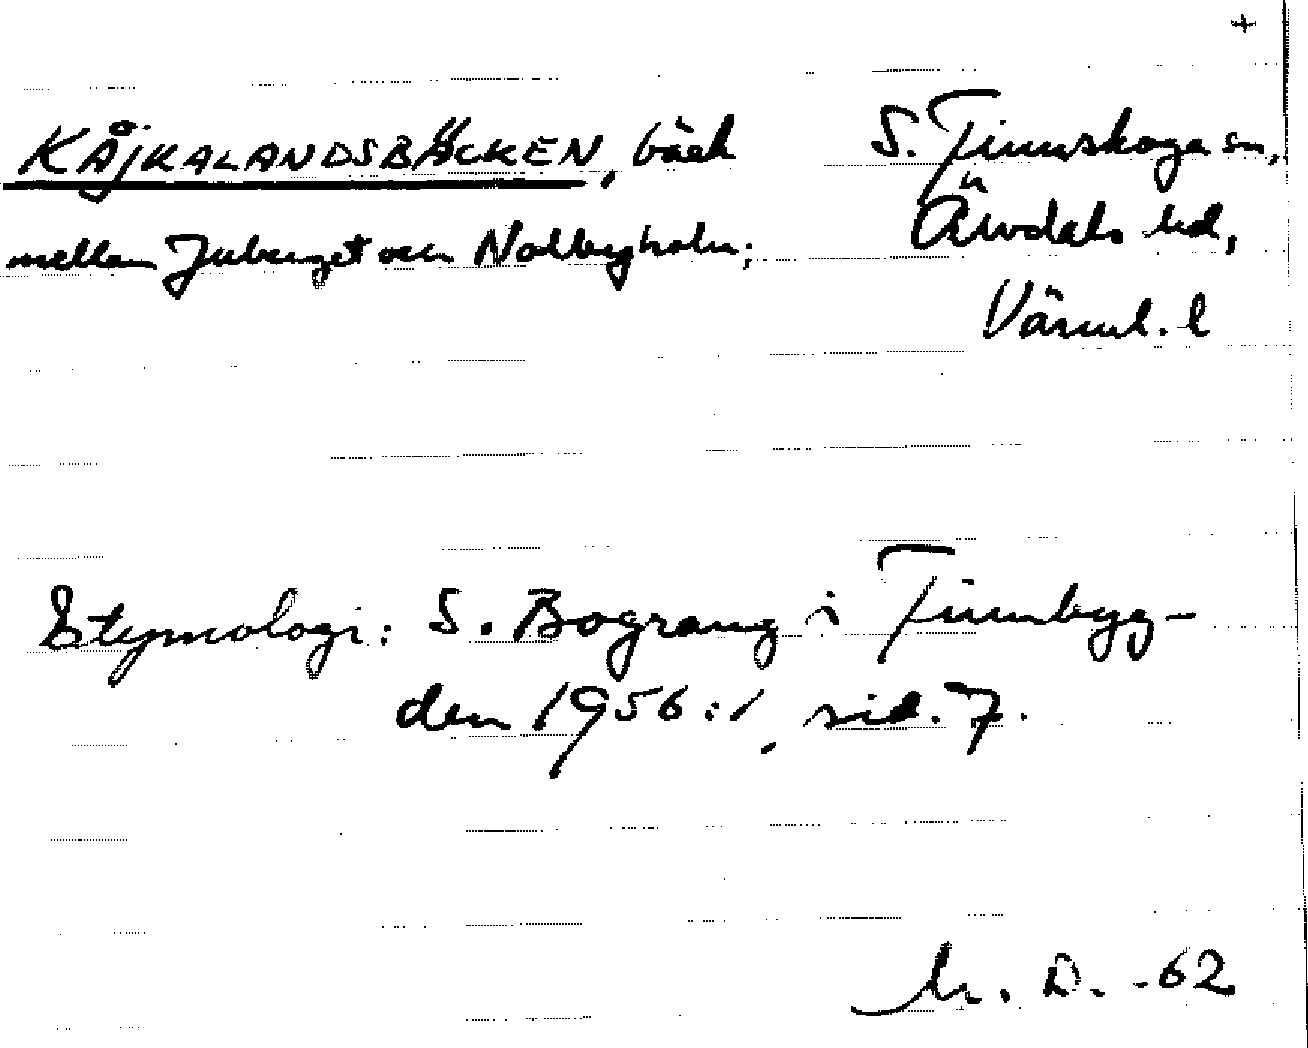 +
KÅJKALANDSBÄCKEN, bäck
mellan Juberget och Nolbyholm;
S. Finnskoga sn,
Älvdals hd,
Värml. l
Etymologi: S. Bograng i Finnbyg-
den 1956:1, sid. 7.
D. -62